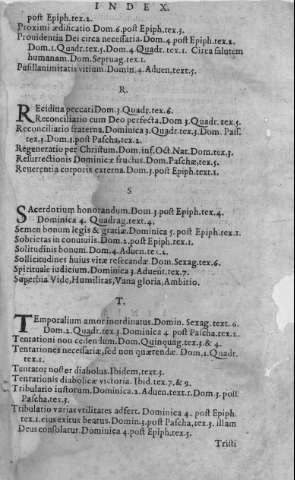 INDEX.
post Epiph.tex.2.
Proximi ædificatio Dom.6.post Epiph.tex.3.
Prouidentia Dei circa necessaria. Dom.4.post Epiph.tex.2.
Dom.1.Quadr.tex.5.Dom.4.Quadr.tex.1. Circa salutem
humanam.Dom.Septuag.tex.1.
Pusillanimitatis vitium.Domin.4.Aduen.text.5.
R.
REcidiua peccati Dom.3.Quadr.tex.6.
Reconciliatio cum Deo perfecta.Dom 3.Quadr.tex.5.
Reconciliatio fraterna. Dominica 3.Quadr.tex.3.Dom. Pass.
tex.3.Dom.1.post Pascha,tex.2.
Regeneratio per Christum.Dom.inf.Oct.Nat.Dom.tex.3.
Resurrectionis Dominicæ fructus.Dom.Paschæ,tex.5.
Reuerentia corporis externa.Dom.3.post Epiph.text.1.
S
SAcerdotium honorandum.Dom.3.post Epiph.tex.4.
Dominica 4. Quadrag.text.4.
Semen bonum legis & gratiæ.Dominica 5. post Epiph.tex.1.
Sobrietas in conuiuiis. Dom.2.post Epiph.tex.1.
Solitudinis bonum. Dom.4.Aduen.tex.2.
Sollicitudines huius vitæ resecandæ Dom.Sexag.tex.6.
Spirituale iudicium.Dominica 3.Aduent.tex.7.
Superbia Vide,Humilitas,Vana gloria,Ambitio.
T.
TEmporalium amor inordinatus. Domio. Sexag.text.6.
Dom.2.Quadr.tex.3.Dominica 4. post Pascha tex.1.
Tentationi non cedendum.Dom.Quinquag.tex.3.& 4.
Tentationes necessariæ,sed non quærendæ. Dom.1.Quadr.
tex.1.
Tentator noster diabolus.Ibidem,text.3.
Tentationis diabolicæ victoria. Ibid.tex.7.& 9.
Tribulatio iustorum.Dominica 2.Aduen.text.1.Dom 3.post
Pascha,tex.3.
Tribulatio varias vtilitates adfert. Dominica 4. post Epiph.
tex.1.eius exitus beatus.Domin.3.post Pascha,tex.5. illam
Deus consolatur.Dominica 4.post Epiph.tex.5.
Tristi